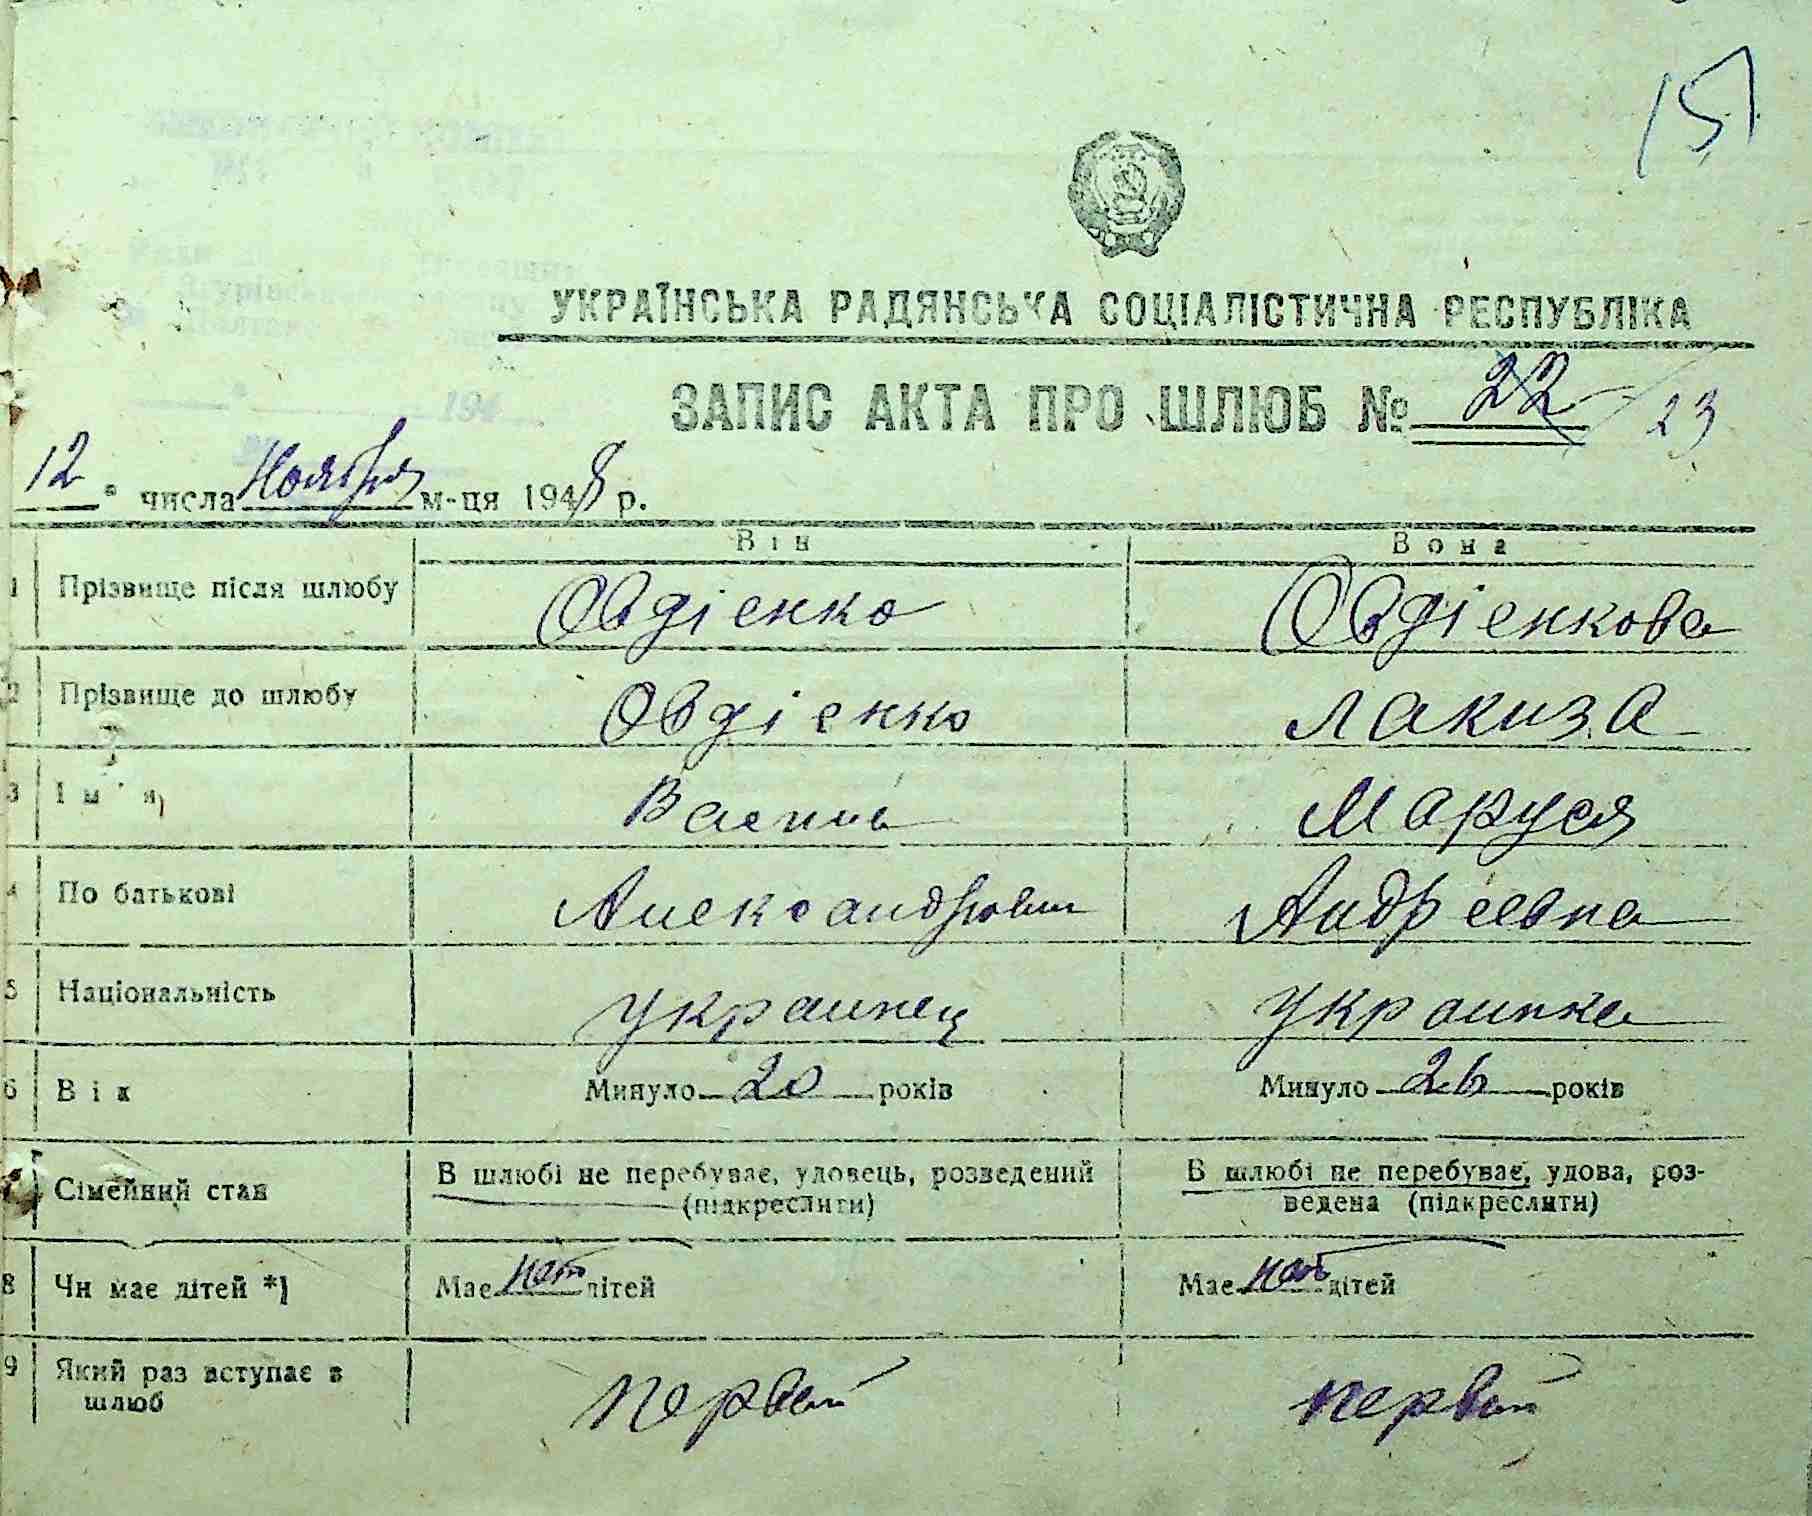 151
УКРАЇНСЬКА РАДЯНСЬКА СОЦІАЛІСТИЧНА РЕСПУБЛІКА
ЗАПИС АКТА ПРО ШЛЮБ № 22 23
12 " числа Ноября м-ця 1948 р.
Він Вона
1 Прізвище після шлюбу Овдієнко Овдієнкова
2 Прізвище до шлюбу Овдієнко Лакиза
3 Ім'я Василь Маруся
4 По батькові Александрович Андреевна
5 Національність украинец украинка
6 Вік Минуло 20 років Минуло 26 років
7 Сімейний стан В шлюбі не перебуває, удовець, розведений (підкреслити) В шлюбі не перебуває, удова, роз-
ведена (підкреслити)
8 Чи має дітей *) Має нет дітей Має нет дітей
9 Який раз вступає в
шлюб первый первый